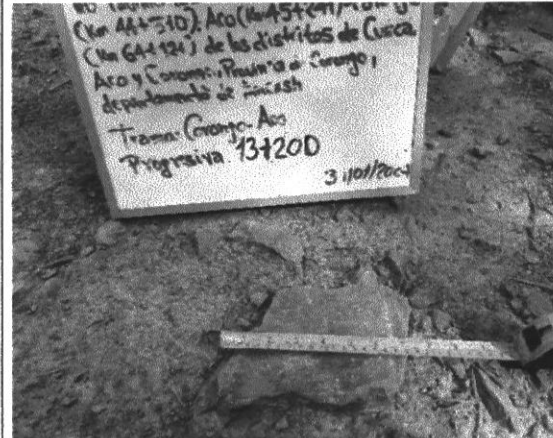 (Km 44+510), Aco (Km 45+241)
(Km 64+121) de los distritos de Cusca
Aco y Corongo, Provincia de Corongo,
departamento de Ancash
Tramo: Corongo-Aco
Progresiva 13+200